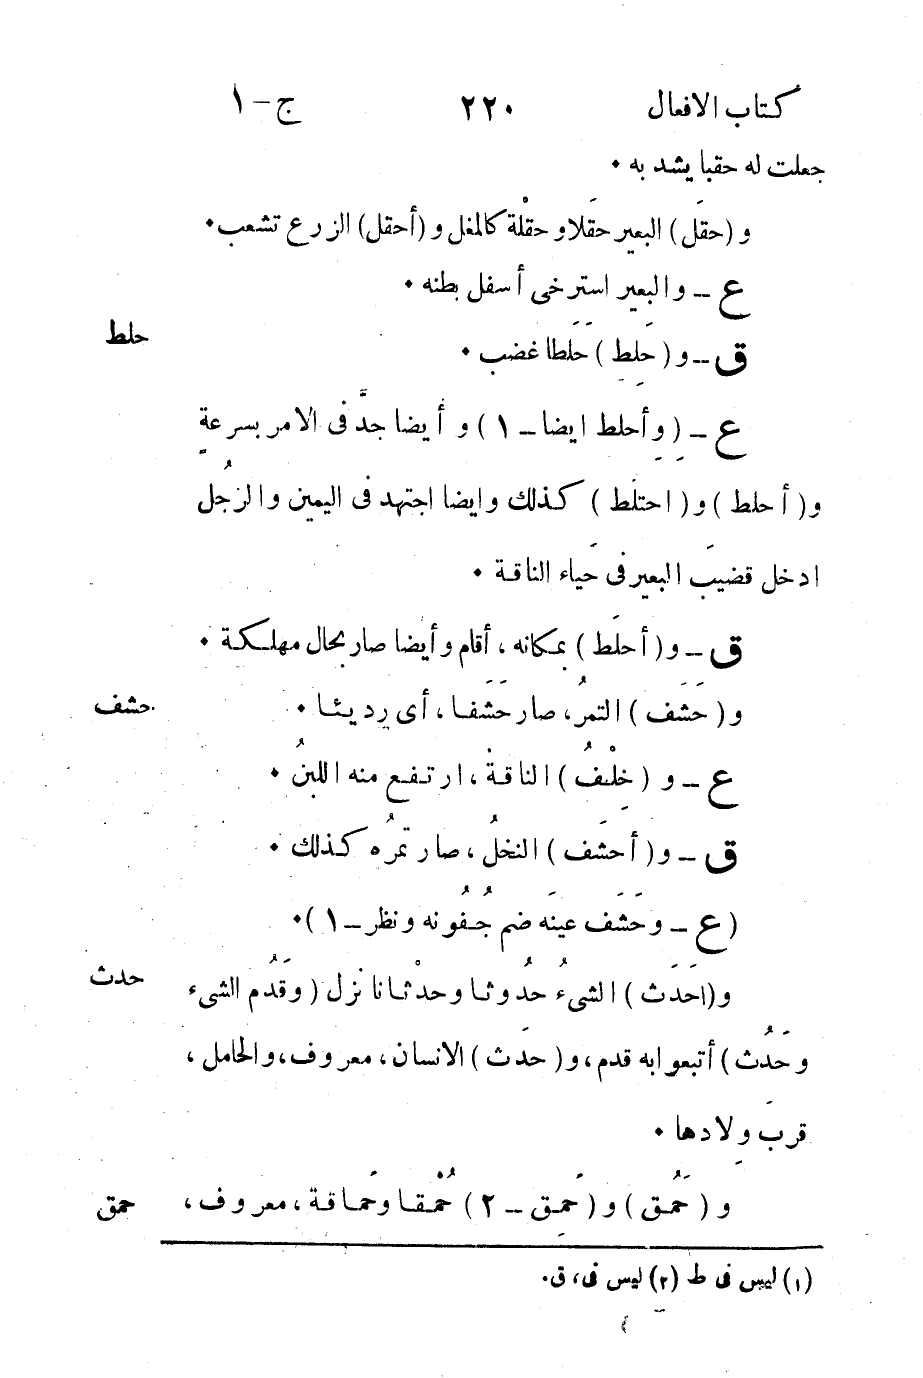 كتاب الافعال ٢٢٠ ج-١
جعلت له حقبا يشد به ٠
و (حقَل) البعير حقَلا و حقْلة كالمغل و (أحقل) الزرع تشعب٠
ع - والبعير استرخى أسفل بطنه ٠
ق - و (حَلِط) حَلَطا غضب ٠ حلط
ع - (وأحلط ايضا - ١) و أيضا جدَّ فى الامر بسرعة
و (أحلط) و (احتلَط) كذلك وايضا اجتهد فى اليمين والرجُل
ادخل قضيبَ البعير فى حَياء الناقة ٠
ق - و (أحلَط) بمكانه، أقام وأيضا صار بحال مهلكة ٠
و (حَشَف) التمرُ، صار حَشَفا، أى رديئا ٠ حشف
ع - و (خِلْفُ) الناقة، ارتفع منه اللبنُ ٠
ق - و (أحشَف) النخلُ، صار تمرُه كذلك ٠
(ع - وحَشَف عينَه ضم جُفُونه ونظر - ١)٠
و (احَدَث) الشىءُ حُدُوثا وحدْثانا نزل (وقَدُم الشىء حدث
وحَدُث) أتبعوا به قدم، و (حدَث) الانسان، معروف، والحامل،
قربَ وِلادها ٠
و (حَمُق) و (حَمِق - ٢) حُمْقا وحَماقة، معروف، حمق
(١) ليس فى ط (٢) ليس فى، ق٠